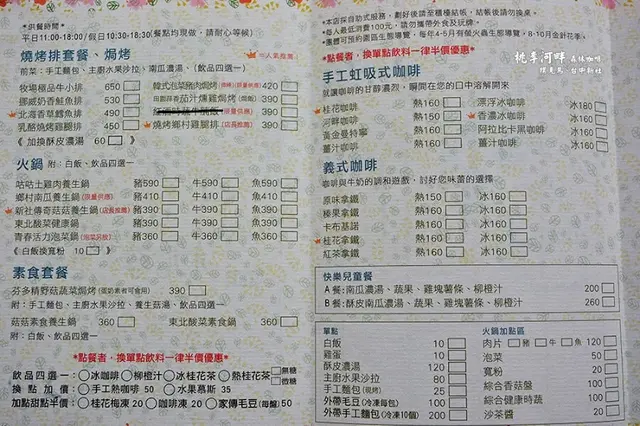 *供餐時間*
平日11:00-18:00/假日10:30-18:30(餐點均現做、請耐心等候)
燒烤排套餐、焗烤 人氣推薦
前菜:手工麵包、主廚水果沙拉、南瓜濃湯、(飲品四選一)
牧場極品牛小排 650
挪威奶香鮭魚排 530
北海香草鱈魚排 530
乳酪燒烤雞腿排 450
《加換酥皮濃湯 60 》
韓式泡菜豬肉焗烤(限量供應) 420
茄汁燻雞焗烤(飯) 390
限量供應
燒烤鄉村雞腿排(店長推薦) 390
火鍋 附:白飯、飲品四選一
咕咕土雞肉養生鍋 豬590 牛590 魚590
鄉村南瓜養生鍋(限量供應) 豬410 牛410 魚410
新社傳奇菇菇養生鍋(店長推薦) 豬360 牛360 魚360
東北酸菜健康鍋 豬360 牛360 魚360
青春活力泡菜鍋 豬360 牛360 魚360
《白飯換寬粉 10 》
素食套餐
芬多精野菇蔬菜焗烤(蛋奶素者可食用) 390
附:手工麵包、主廚水果沙拉、養生菇湯、飲品四選一
菇菇素食養生鍋 360 東北酸菜素食鍋 360
附:白飯、飲品四選一
*點餐者,換單點飲料一律半價優惠*
飲品四選一:○冰咖啡○柳橙汁○冰桂花茶○熱桂花茶 無糖 微糖
換點加價:○手工熱咖啡50 ○水果慕斯 35
加點甜點半價:○桂花梅凍20○咖啡凍20○家傳毛豆(每盤)50
*本店採自助式服務,劃好後請至櫃檯結帳,結帳後請勿換桌。
*每人最低消費100元,請勿攜帶外食及玩牌。
*團體可預約園區生態導覽,每年4-5月有螢火蟲生態導覽、8-10月金針花季。
*點餐者,換單點飲料一律半價優惠*
桃李河畔 森林咖啡
手工虹吸式咖啡
就讓咖啡的甘醇濃烈,瞬間在您的口中溶解開來
桂花咖啡 熱160 漂浮冰咖啡 冰180
河畔咖啡 熱150 香濃冰咖啡 冰160
黃金曼特寧 熱160 阿拉比卡黑咖啡 冰160
薑汁咖啡 熱160 薑汁咖啡 冰160
義式咖啡
咖啡與牛奶的調和遊戲,討好您味蕾的選擇
原味拿鐵 熱150 冰160
榛果拿鐵 熱160 冰160
卡布基諾 熱160 冰160
桂花拿鐵 熱160 冰160
紅茶拿鐵 熱160 冰160
快樂兒童餐
A餐:南瓜濃湯、蔬果、雞塊薯條、柳橙汁 200
B餐:酥皮南瓜濃湯、蔬果、雞塊薯條、柳橙汁 260
單點
白飯 10
雞蛋 10
酥皮濃湯 120
主廚水果沙拉 80
手工麵包(現烤) 25
外帶毛豆(冷凍每包) 100
外帶手工麵包(冷凍10個) 200
火鍋加點區
肉片 豬 牛 魚 120
泡菜 50
寬粉 20
綜合香菇盤 100
綜合健康時蔬 100
沙茶醬 20